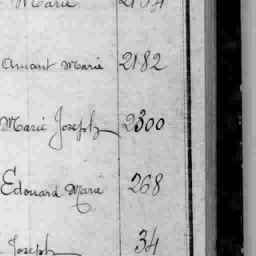 Marie
Amant Marie 2182
Marie Joseph 2300
Edouard Marie 268
Joseph 34